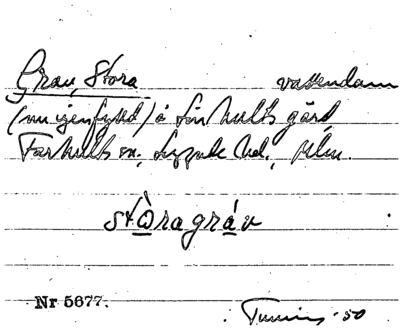 Grav, Stora vattendam
(nu igenfylld) å Farhults gård,
Farhults sn, Luggude hd,
stòragráv
Nr 5677.
-50